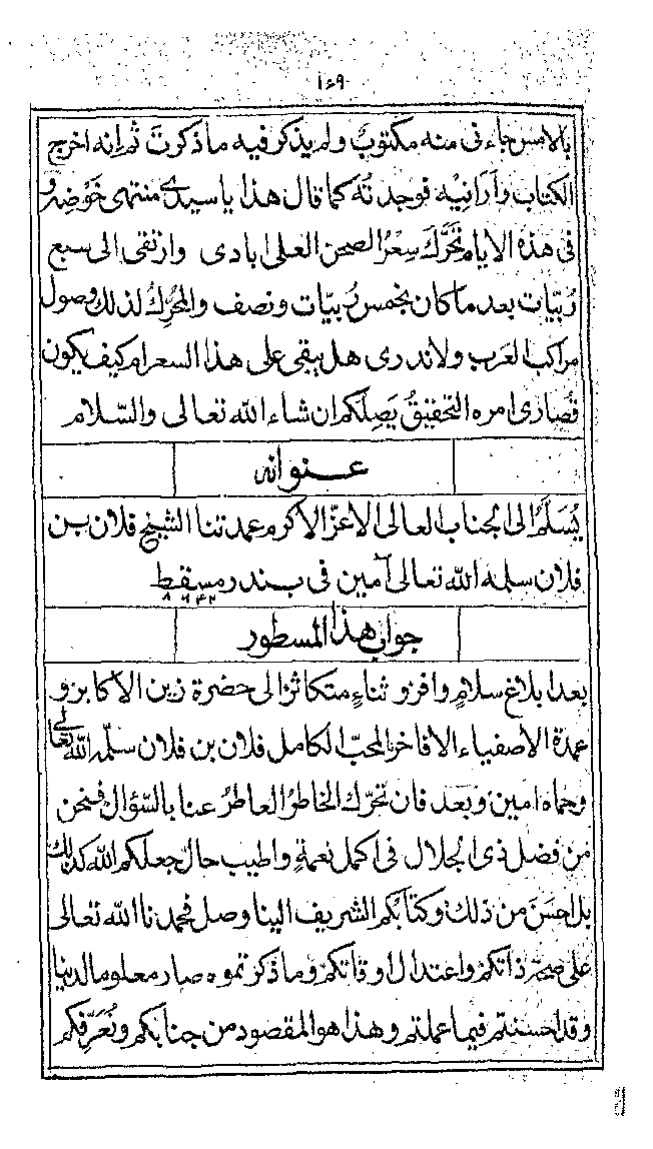 ۱۶۹
بالامس جاءنی منه مکتوبٌ ولم یذکر فیه ما ذکرتَ ثم انه اخرج
الکتاب وأَرَانِیْه فوجدتُه کما قال هذا یا سیدی منتهی خَوْضِه و
فی هذه الایام تَحَرَّكَ سِعْرُ الصحن العلی ابادی وارتقی الی سبع
رُبیّات بعد ما کان بخمس رُبیّات ونصف والمُحرِّكُ لذلك وصول
مراکب العَرَب ولاندری هل یبقی علی هذا السعر ام کیف یکون
قُصَاری امره التحقیقُ یَصِلُکم ان شاء الله تعالی والسّلام
عنوانه
یُسَلَّمُ الی الجناب العالی الاعزّ الاکرم عمدتنا الشیخ فلان بن
فلان سلمه الله تعالی آمین فی بندر مسقط
جواب هذا المسطور
بعد ابلاغ سلامٍ وافرٍ و ثناءٍ متکاثرٍ الی حضرة زین الاکابر و
عمدة الاصفیاء الافاخر المحبّ الکامل فلان بن فلان سلّمه الله تعالی
وحماه امین وبعد فان تحرّك الخاطرُ العاطرُ عنا بالسّؤال فنحن
من فضل ذی الجلال فی اکمل نعمةٍ واطیب حال جعلکم الله کذلك
بل احسَنَ من ذلك وکتابُکم الشریف الینا وصل فحمدنا الله تعالی
علی صحة ذاتکم واعتدال اوقاتکم وما ذکرتموه صار معلوما لدینا
وقد احسنتم فیما عملتم وهذا هو المقصود من جنابکم ونُعَرِّفکم